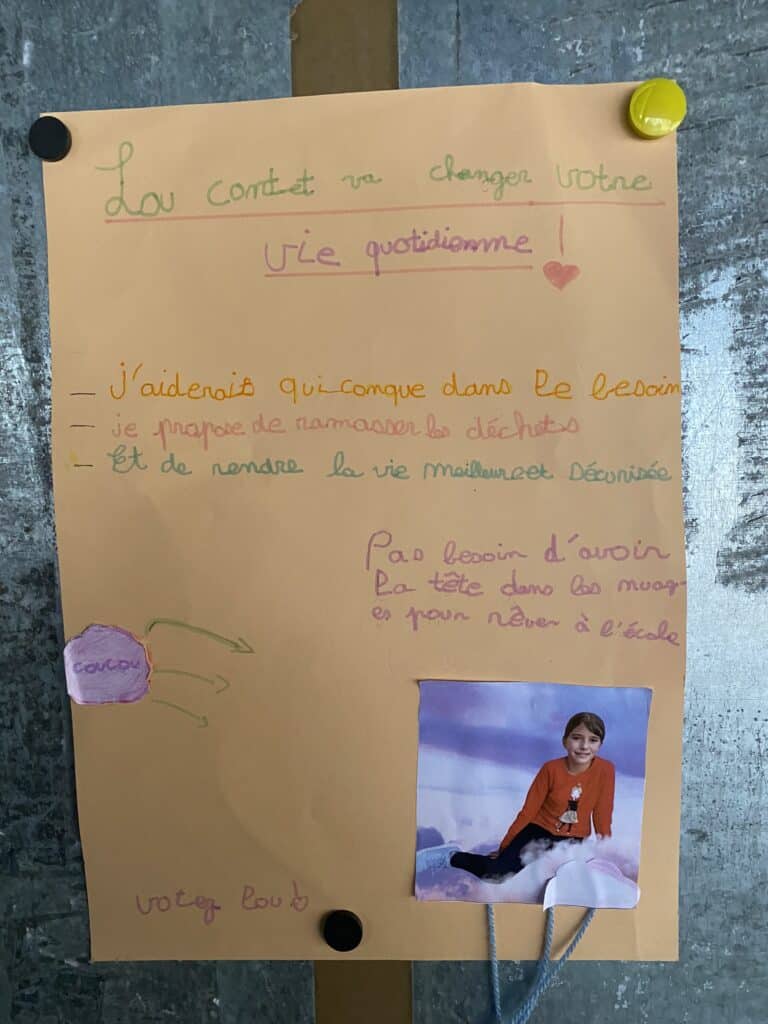 Lou contet va changer votre
vie quotidienne !
– j'aiderais qui conque dans le besoin
– je propose de ramasser les déchets
– Et de rendre la vie meilleure et sécurisée
Pas besoin d'avoir
la tête dans les nuag-
es pour rêver à l'école
COUCOU
votez lou